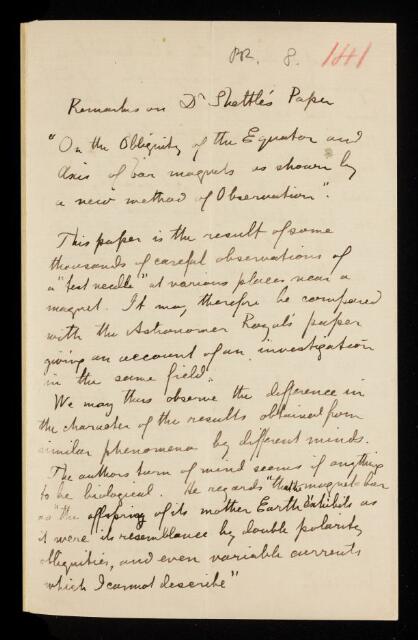 RR. 8. 141
Remarks on Dr Shettle's Paper
"On the Obliquity of the Equator and
Axis of bar magnets as shown by
a new method of Observation".
This paper is the result of some
thousands of careful observations of
a "test needle" at various places near a
magnet. It may therefore be compared
with the Astronomer Royal's paper
giving an account of an investigation
in the same field.
We may thus observe the difference in
the character of the results obtained from
similar phenomena by different minds.
The authors turn of mind seems if anything
to be biological. He regards "the magnetic bar
as "the offspring of its mother Earth" exhibits as
it were its resemblance by double polarity
obliquities, and even variable currents
which I cannot describe"